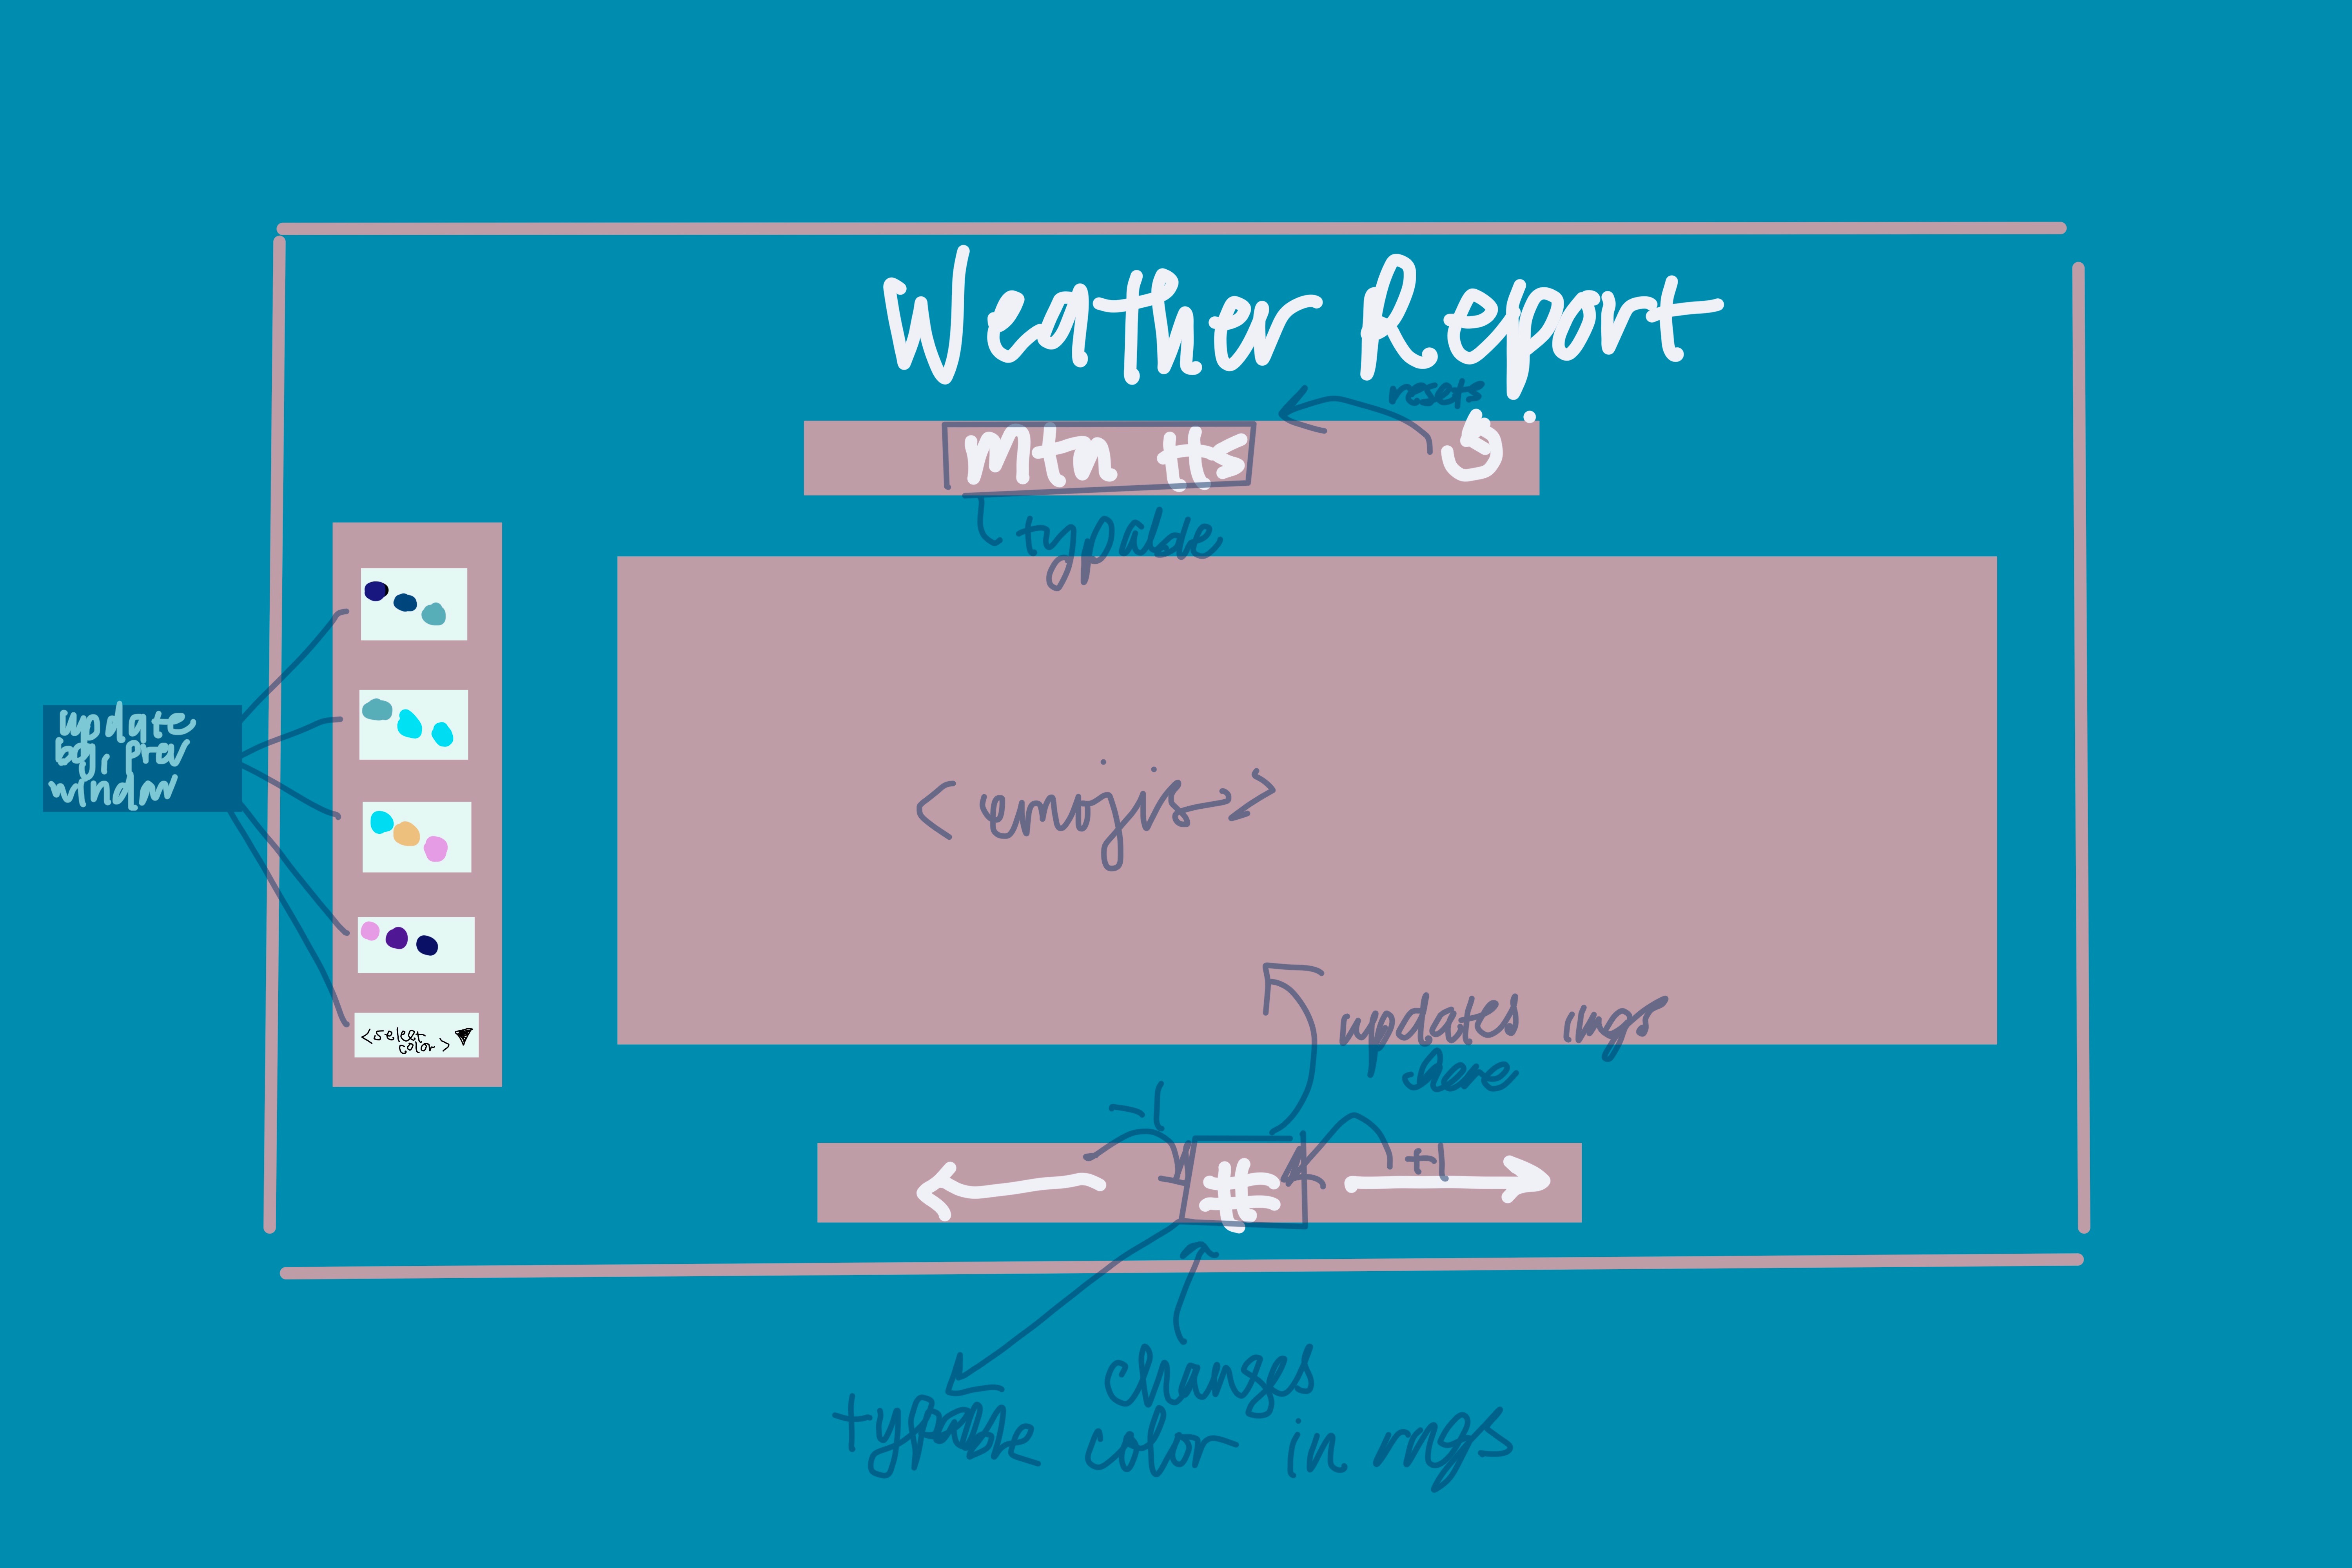 Weather Report
resets
mtn
typable
update
bg, prev
window
<emojis>
<select
color>
updates imgs
here
-1
#
+1
typable
changes
color in rngs